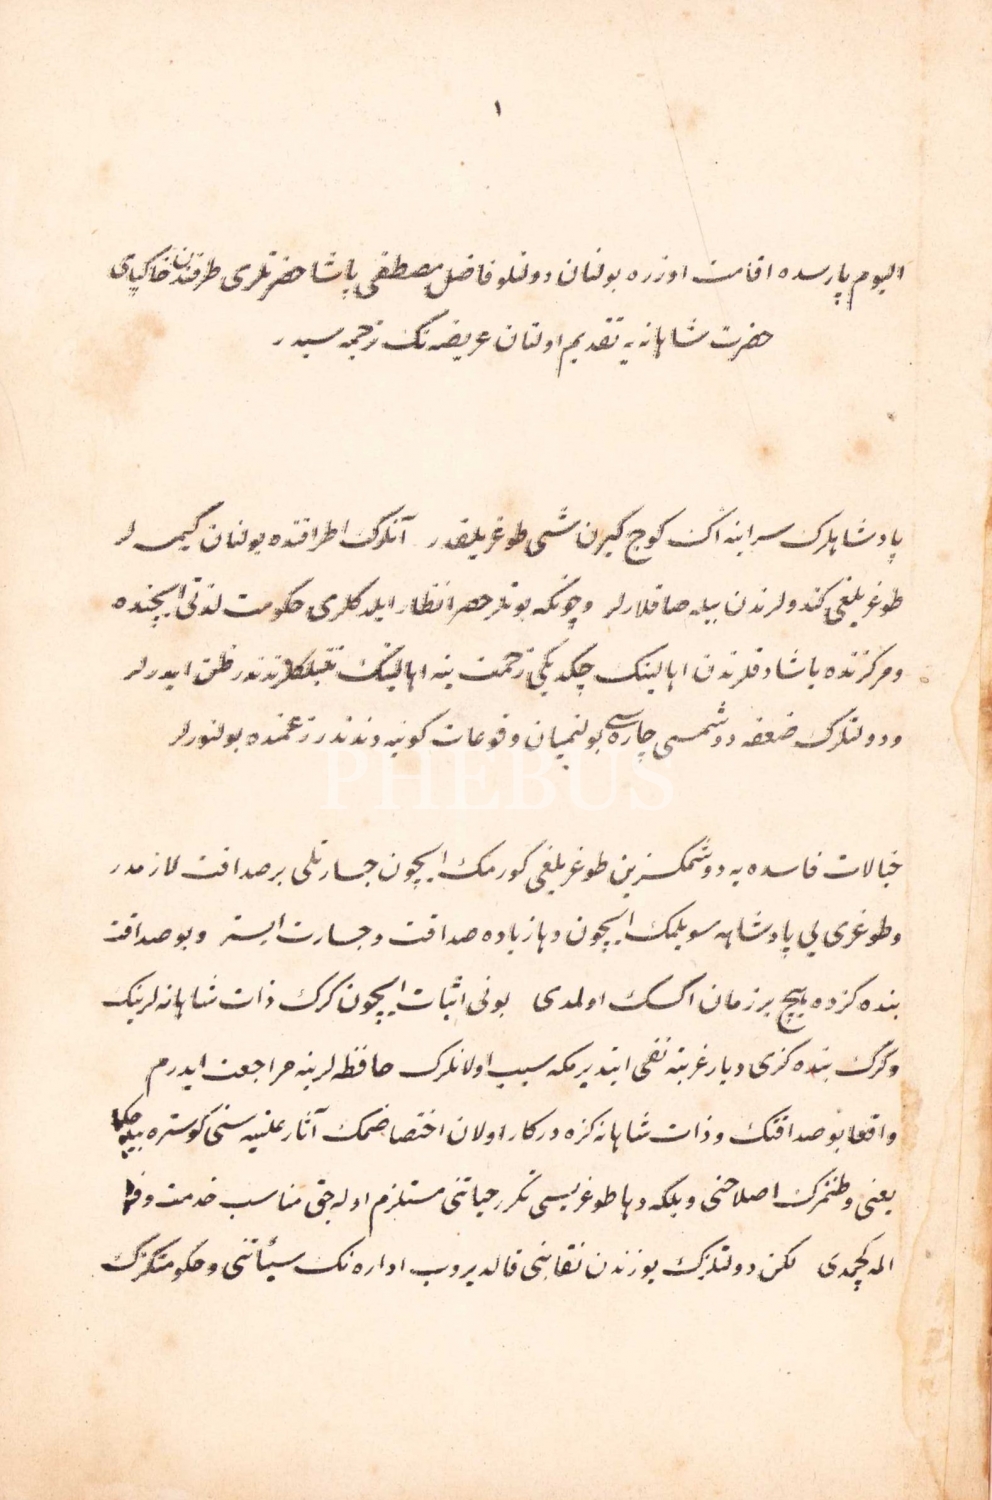 ١
اليوم پارسده اقامت اوزره بولنان دولتلو فاضل مصطفى پاشا حضرتلرى طرفندن خاكپاى
حضرت شاهانه يه تقديم اولنان عريضه نك ترجمه سيدر
پادشاهلرك سراينه اك كوج كيرن شى طوغريلقدر آنلرك اطرافنده بولنان كيمسه لر
طوغريلغى كندولرندن بيله صاقلارلر وچونكه بونلر حصر انظار ايلدكلرى حكومت لذتى ايچنده
ومركزنده ياشادقلرندن اهالينك چكديكى زحمت ينه اهالينك تنبلكلرندندر ظن ايدرلر
ودولتلرك ضعفه دوشمسى چاره سى بولنميان وقوعات كونيه دندر زعمنده بولنورلر
خيالات فاسده يه دوشمكسزين طوغريلغى كورمك ايچون جسارتلى بر صداقت لازمدر
وطوغرى يى پادشاهه سويلمك ايچون دها زياده صداقت وجسارت ايستر وبو صداقت
بنده كزده هيچ بر زمان اكسك اولمدى بونى اثبات ايچون كرك ذات شاهانه لرينك
وكرك بنده كزى ديار غربته نفى ايتديرمكه سبب اولانلرك حافظه لرينه مراجعت ايدرم
واقعا بو صداقتك وذات شاهانه كزه دركار اولان اختصاصمك آثار علنيه سنى كوستره بيله جك
يعنى وطنمزك اصلاحنى وبلكه دها طوغريسى تكرر حياتنى مستلزم اوله جق مناسب خدمت وفرصت
المه كچمدى لكن دولتكزك يوزندن نقابنى قالديروب اداره نك سيئاتنى وحكومتكزك
PHEBUS